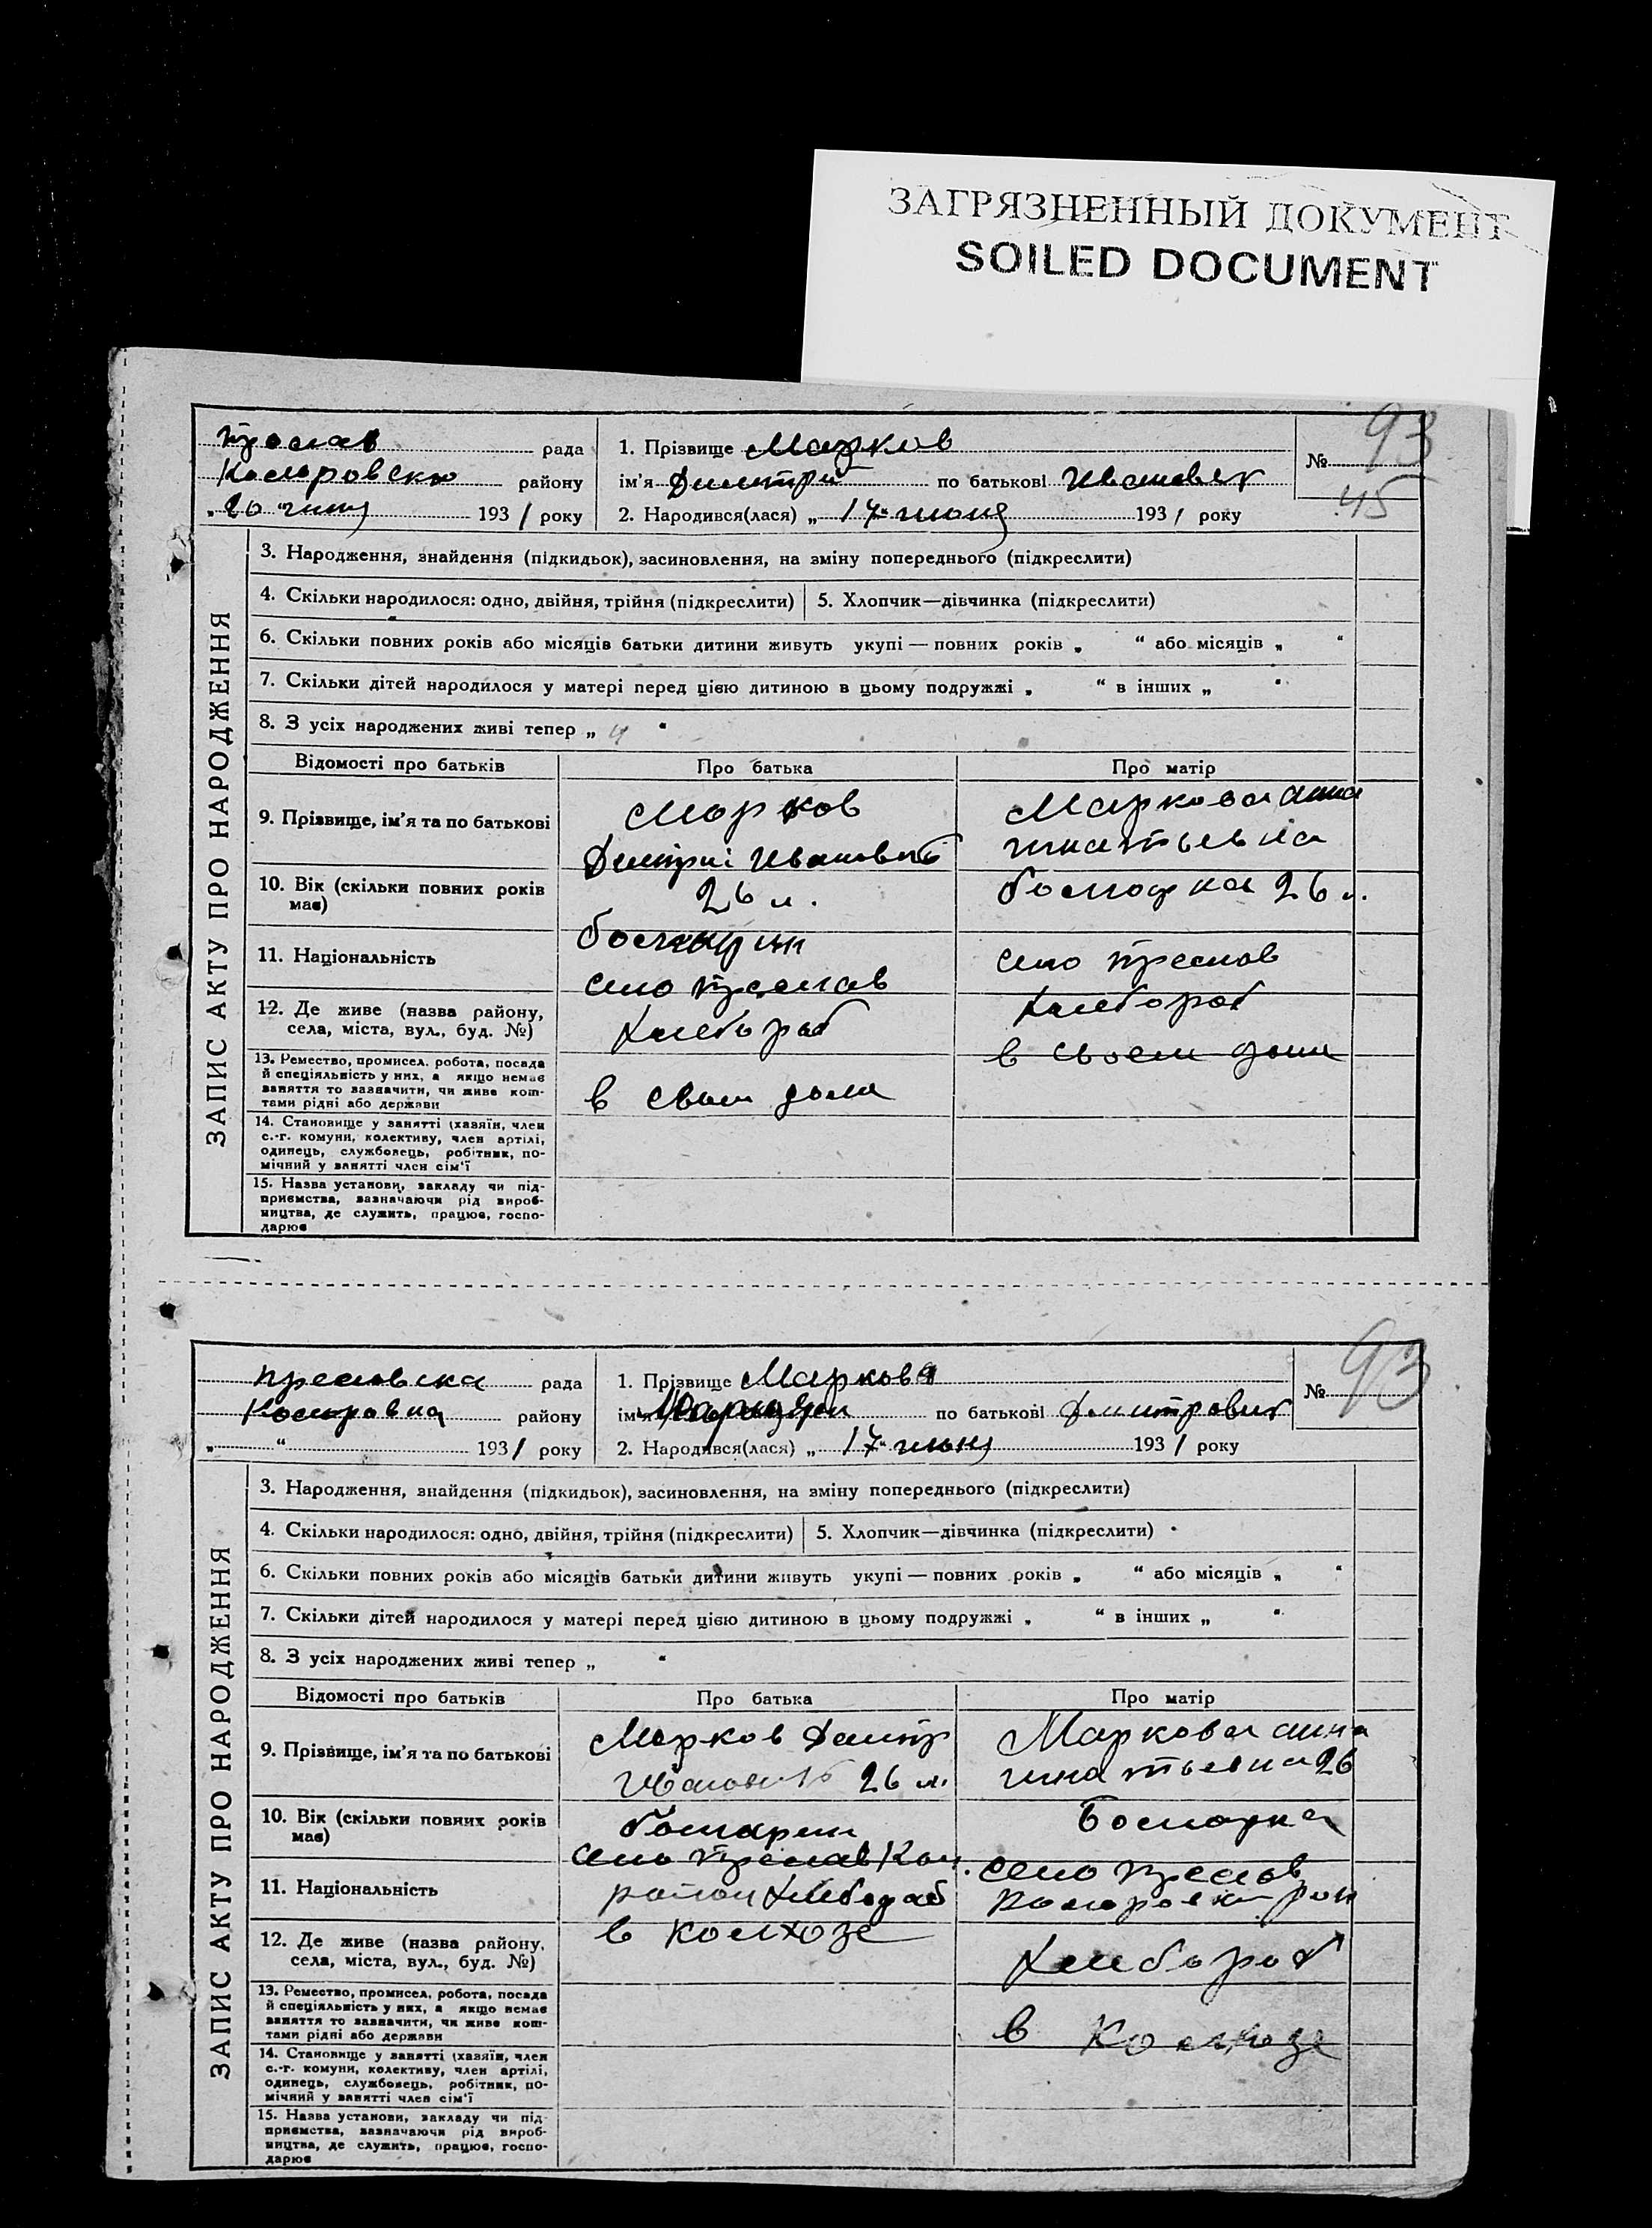 ЗАГРЯЗНЕННЫЙ ДОКУМЕНТ
SOILED DOCUMENT
93
45
Преслав рада
Коларовско району
"20 193 1 року
1. Прізвище Марков
ім'я Дмитрий по батькові Иванович
2. Народився(лася) „ 17 " июня 193 1 року
№
ЗАПИС АКТУ ПРО НАРОДЖЕННЯ
3. Народження, знайдення (підкидьок), засиновлення, на зміну попереднього (підкреслити)
4. Скільки народилося: одно, двійня, трійня (підкреслити) 5. Хлопчик—дівчинка (підкреслити)
6. Скільки повних років або місяців батьки дитини живуть укупі — повних років „ “ або місяців „ “
7. Скільки дітей народилося у матері перед цією дитиною в цьому подружжі „ “ в інших „ “
8. З усіх народжених живі тепер „ 4 “
Відомості про батьків Про батька Про матір
9. Прізвище, ім'я та по батькові
Марков
Дмитрий Иванович
Маркова Анна
Игнатьевна
10. Вік (скільки повних років має)
26 л.
болгарка 26 л.
11. Національність
болгарин
село Преслав
село Преслав
12. Де живе (назва району,
села, міста, вул., буд. №)
хлебороб
хлебороб
13. Ремество, промисел, робота, посада
й спеціяльність у них, а якщо немає
заняття то зазначити, чи живе кош-
тами рідні або держави
в своем доме
в своем доме
14. Становище у занятті (хазяїн, член
с.-г. комуни, колективу, член артілі,
одинець, службовець, робітник, по-
мічний у занятті член сім'ї
15. Назва установи, закладу чи під-
приємства, зазначаючи рід вироб-
ництва, де служить, працює, госпо-
дарює
93
Преславска рада
району
„ “ 193 1 року
1. Прізвище Маркова
ім'я по батькові Дмитрович
2. Народився(лася) „ 17 " июня 193 1 року
№
ЗАПИС АКТУ ПРО НАРОДЖЕННЯ
3. Народження, знайдення (підкидьок), засиновлення, на зміну попереднього (підкреслити)
4. Скільки народилося: одно, двійня, трійня (підкреслити) 5. Хлопчик—дівчинка (підкреслити)
6. Скільки повних років або місяців батьки дитини живуть укупі — повних років „ “ або місяців „ “
7. Скільки дітей народилося у матері перед цією дитиною в цьому подружжі „ “ в інших „ “
8. З усіх народжених живі тепер „ “
Відомості про батьків Про батька Про матір
9. Прізвище, ім'я та по батькові
Марков Дмитр
Иванович 26 л.
Маркова Анна
Игнатьевна 26
10. Вік (скільки повних років має)
болгарин
Болгарка
11. Національність
село Преслав Кол.
район хлебороб
село Преслав
Коларовски рон
12. Де живе (назва району,
села, міста, вул., буд. №)
в колхозе
хлебороб
13. Ремество, промисел, робота, посада
й спеціяльність у них, а якщо немає
заняття то зазначити, чи живе кош-
тами рідні або держави
в колхозе
14. Становище у занятті (хазяїн, член
с.-г. комуни, колективу, член артілі,
одинець, службовець, робітник, по-
мічний у занятті член сім'ї
15. Назва установи, закладу чи під-
приємства, зазначаючи рід вироб-
ництва, де служить, працює, госпо-
дарює